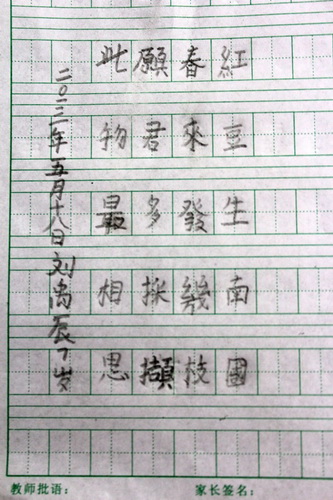 紅豆生南國
春來發幾枝
願君多採擷
此物最相思
二〇二二年五月十八日刘禹辰7岁
教师批语：
家长签名：